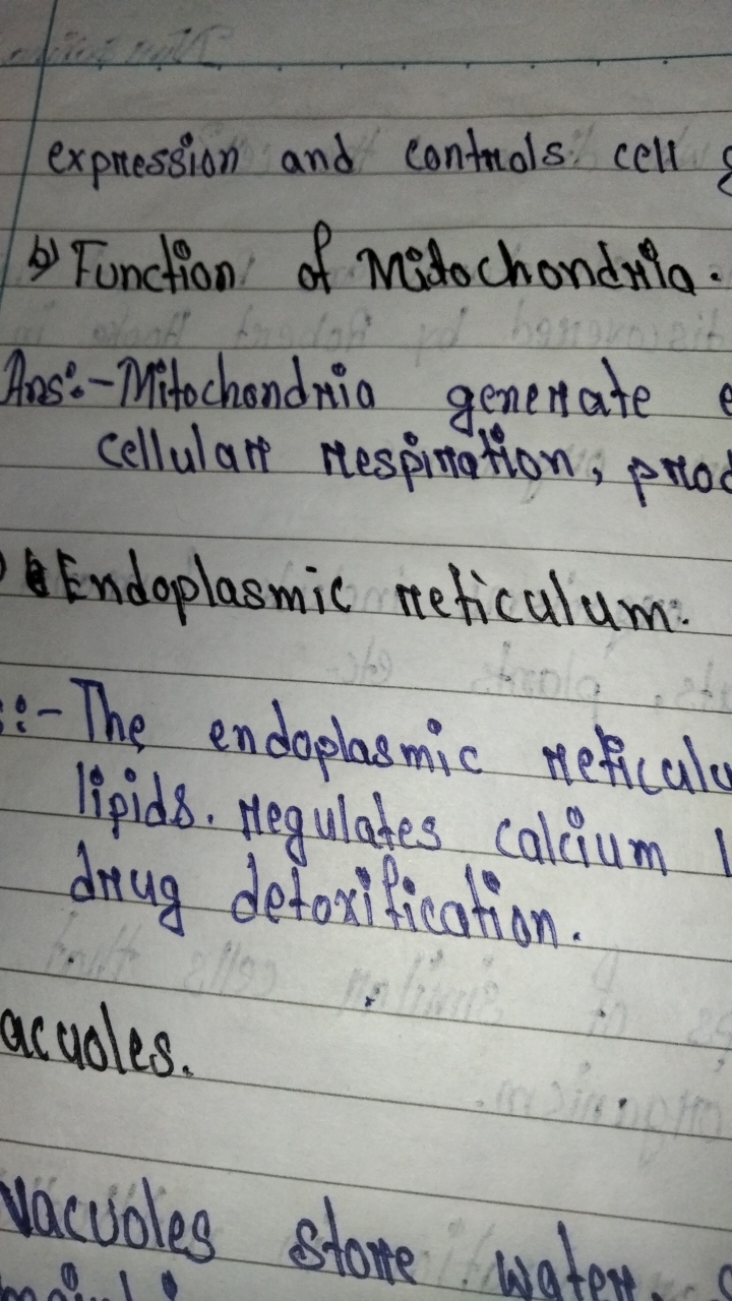 expression and controls cell
b) Function of Mitochondria.
Ans:- Mitochondria generate e
cellular respiration, prod
Endoplasmic reticulum.
:- The endoplasmic reticulu
lipids. regulates calcium l
drug detoxification.
acuoles.
vacuoles store water,